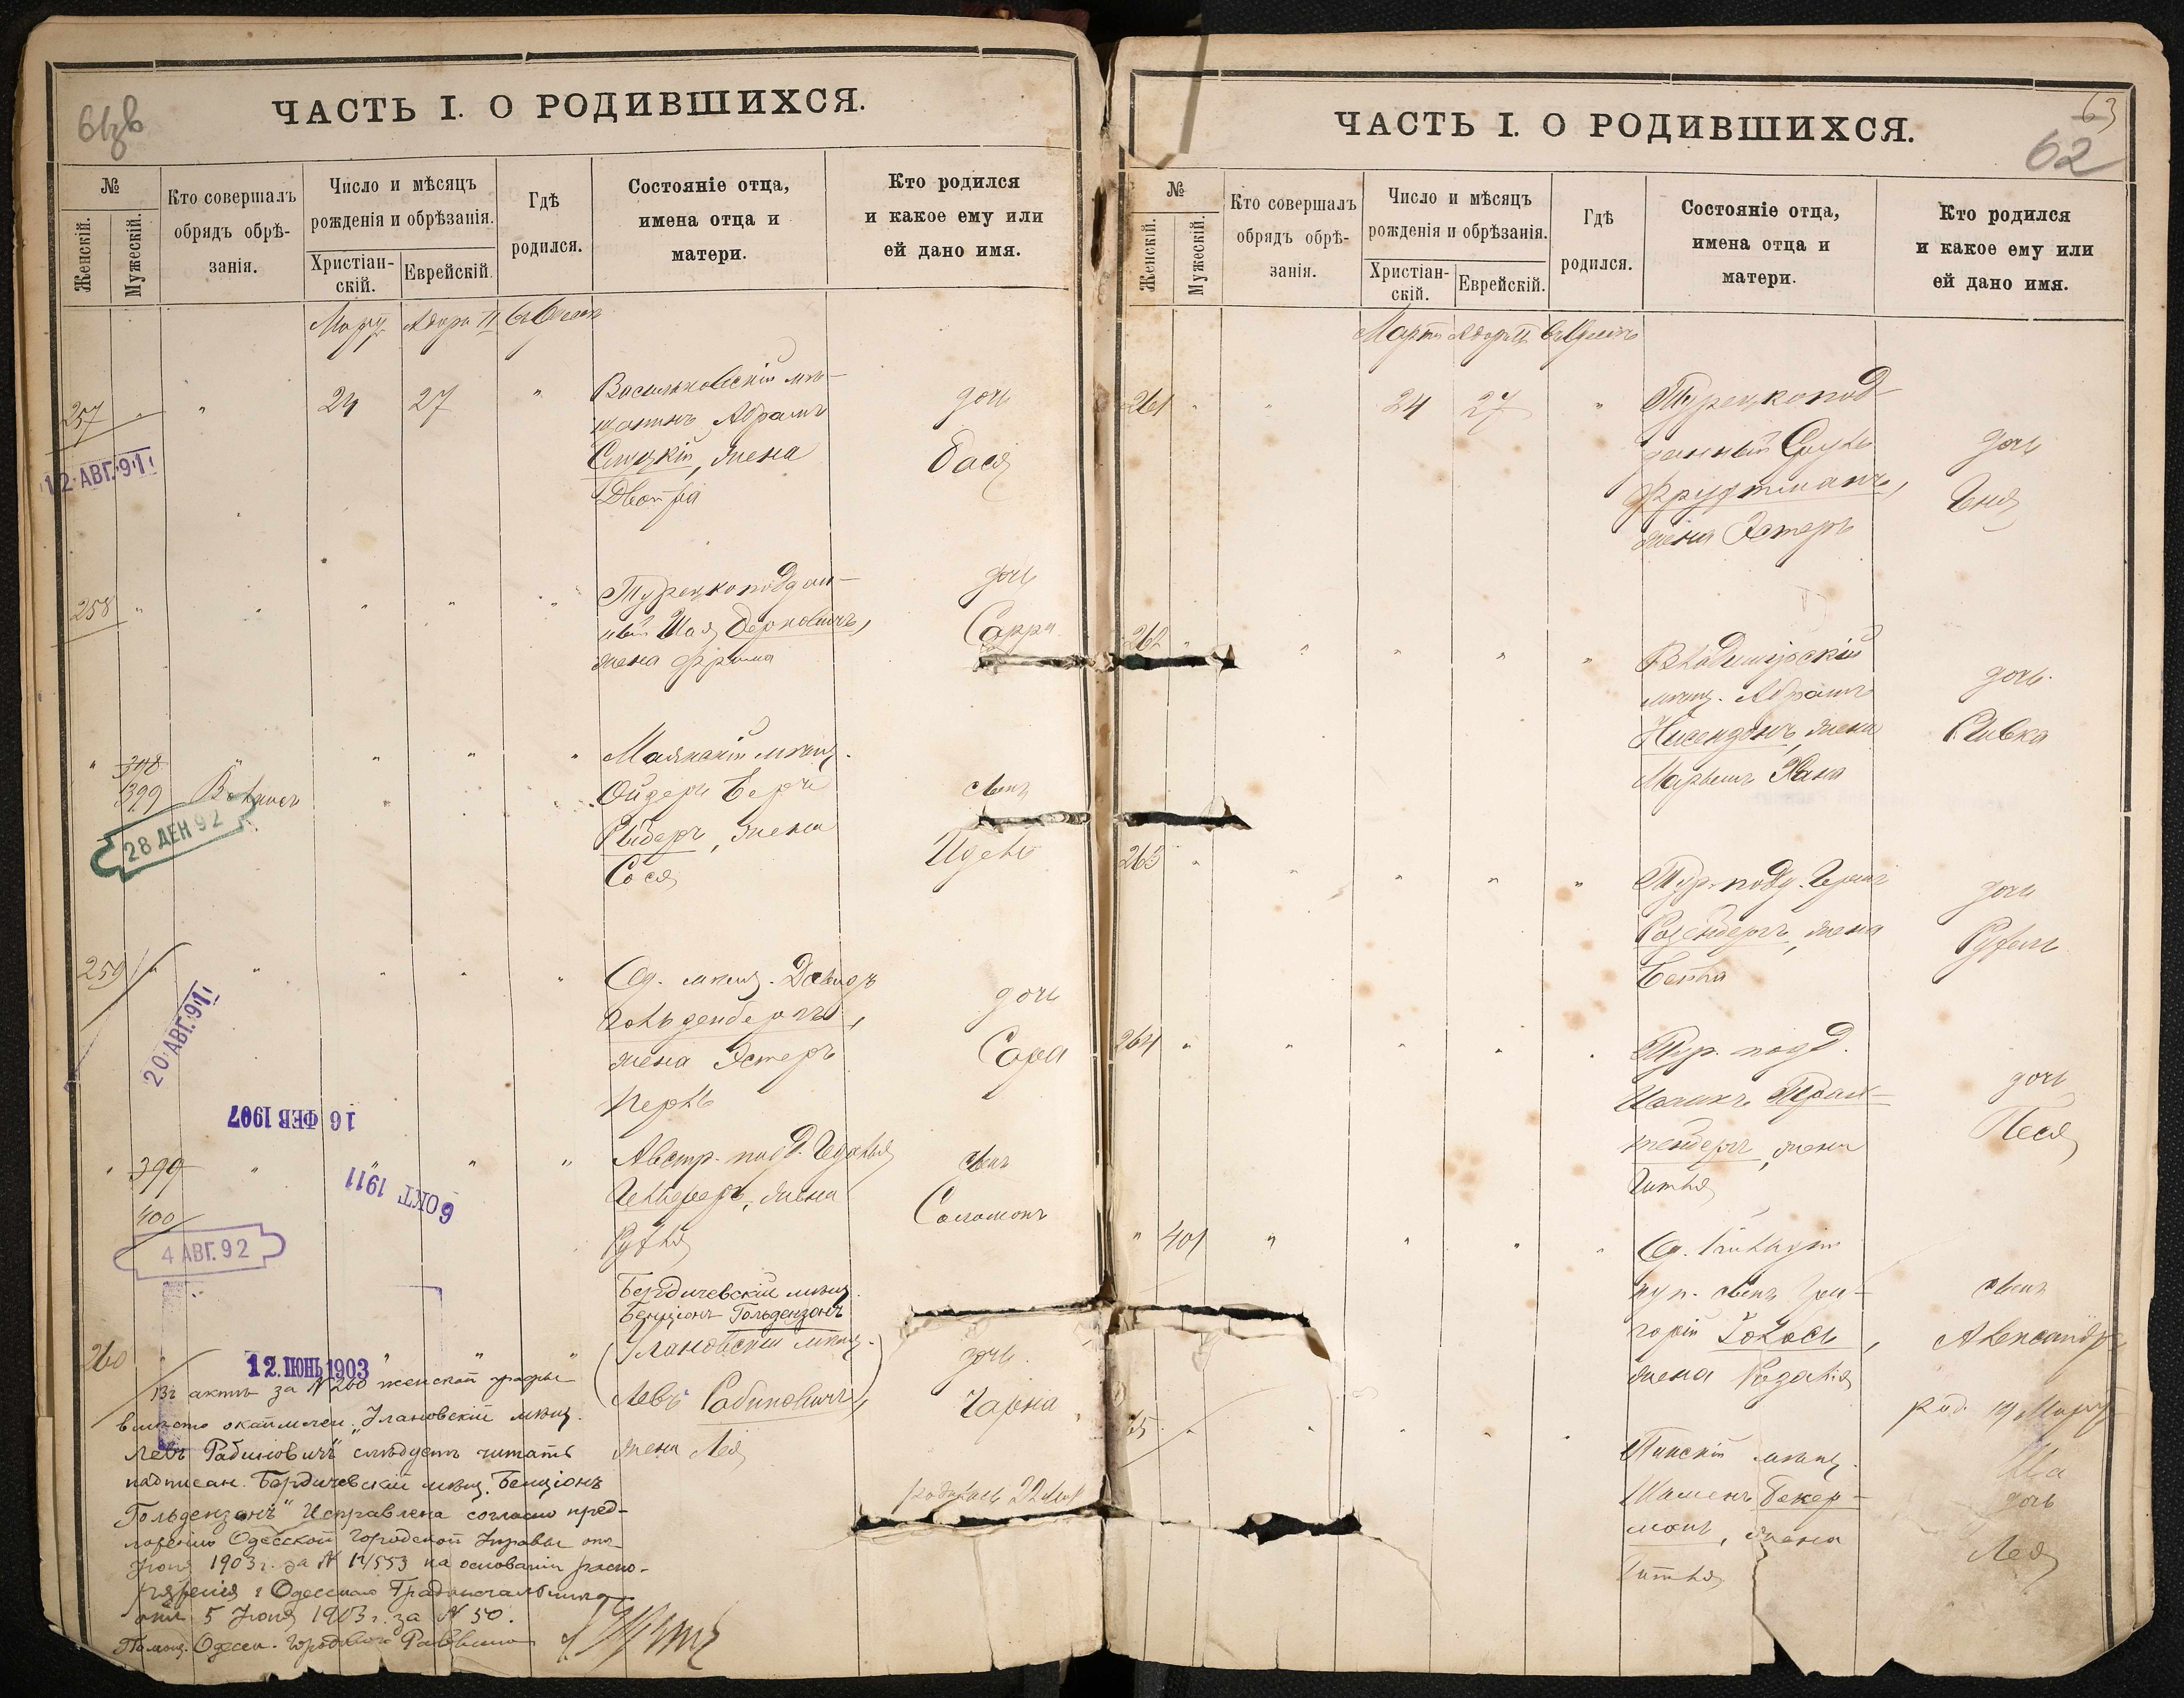 61зв
ЧАСТЬ I. О РОДИВШИХСЯ.
№
Женскій.
Мужескій.
Кто совершалъ
обрядъ обрѣ-
занія.
Число и мѣсяцъ
рожденія и обрѣзанія.
Христіан-
скій.
Еврейскій.
Гдѣ
родился.
Состояніе отца,
имена отца и
матери.
Кто родился
и какое ему или
ей дано имя.
Мартъ Адаръ II въ Одессѣ
257 " " 24 27 "
Васильковскій мѣ-
щанинъ Абрамъ
Слуцкій, жена
Двойра
дочь
Бася
12·АВГ·91
258 "
Турецкоподдан-
ный Шая Берковичъ,
жена Фрима
дочь
Сарра
" 398
399
Маякскій мѣщ.
Ойзеръ Беръ
жена
Сося
сынъ
28 ДЕК 92
259 "
Од. мѣщ. Давидъ
Гольденбергъ,
жена Эстеръ
Перль
дочь
Сара
20·АВГ·91
16 ФЕВ 1907
" 399
400
Австр. подд.
жена
Рухля
сынъ
Соломонъ
6 ОКТ 1911
4 АВГ. 92
260
Бердичевскій мѣщ.
Бенціонъ Гольдензонъ
(Улановскій мѣщ.
Левъ Рабиновичъ),
жена Лея
дочь
Чарна
родилась 22 Мар
12. ІЮНЬ 1903
Въ актѣ за № 260 женской графы
вмѣсто окаймлен. "Улановскій мѣщ.
Левъ Рабиновичъ" слѣдуетъ читать
надписан. Бердичевскій мѣщ. Бенціонъ
Гольдензонъ" Исправлена согласно пред-
ложенію Одесской Городской Управы отъ
Іюня 1903 г. за № 14553 на основаніи распо-
ряженія г. Одесскаго Градоначальника
отъ 5 Іюня 1903 г. за № 50.
Помощ. Одесск. Городового Раввина
63
62
ЧАСТЬ I. О РОДИВШИХСЯ.
№
Женскій.
Мужескій.
Кто совершалъ
обрядъ обрѣ-
занія.
Число и мѣсяцъ
рожденія и обрѣзанія.
Христіан-
скій.
Еврейскій.
Гдѣ
родился.
Состояніе отца,
имена отца и
матери.
Кто родился
и какое ему или
ей дано имя.
Мартъ Адаръ II въ Одессѣ
261 " " 24 27 "
Турецкопод-
данный Сруль
Фрухтманъ,
жена Эстеръ
дочь
Геня
262 "
Владимірскій
мѣщ. Абрамъ
Нисензонъ, жена
Марьемъ Хана
дочь
Ривка
263 "
Тур. подд. Гершъ
Розенбергъ, жена
Бейла
дочь
Рухель
264 "
Тур. подд.
Ицикъ Трах-
тенбергъ, жена
Гитля
дочь
Песя
" 401 "
Од. 2 гильдіи
куп. сынъ Гри-
горій
жена Розалія
сынъ
Александръ
род. 19 Марта
65 "
Пинскій мѣщ.
Бекер-
манъ, жена
Гитля
дочь
Лея